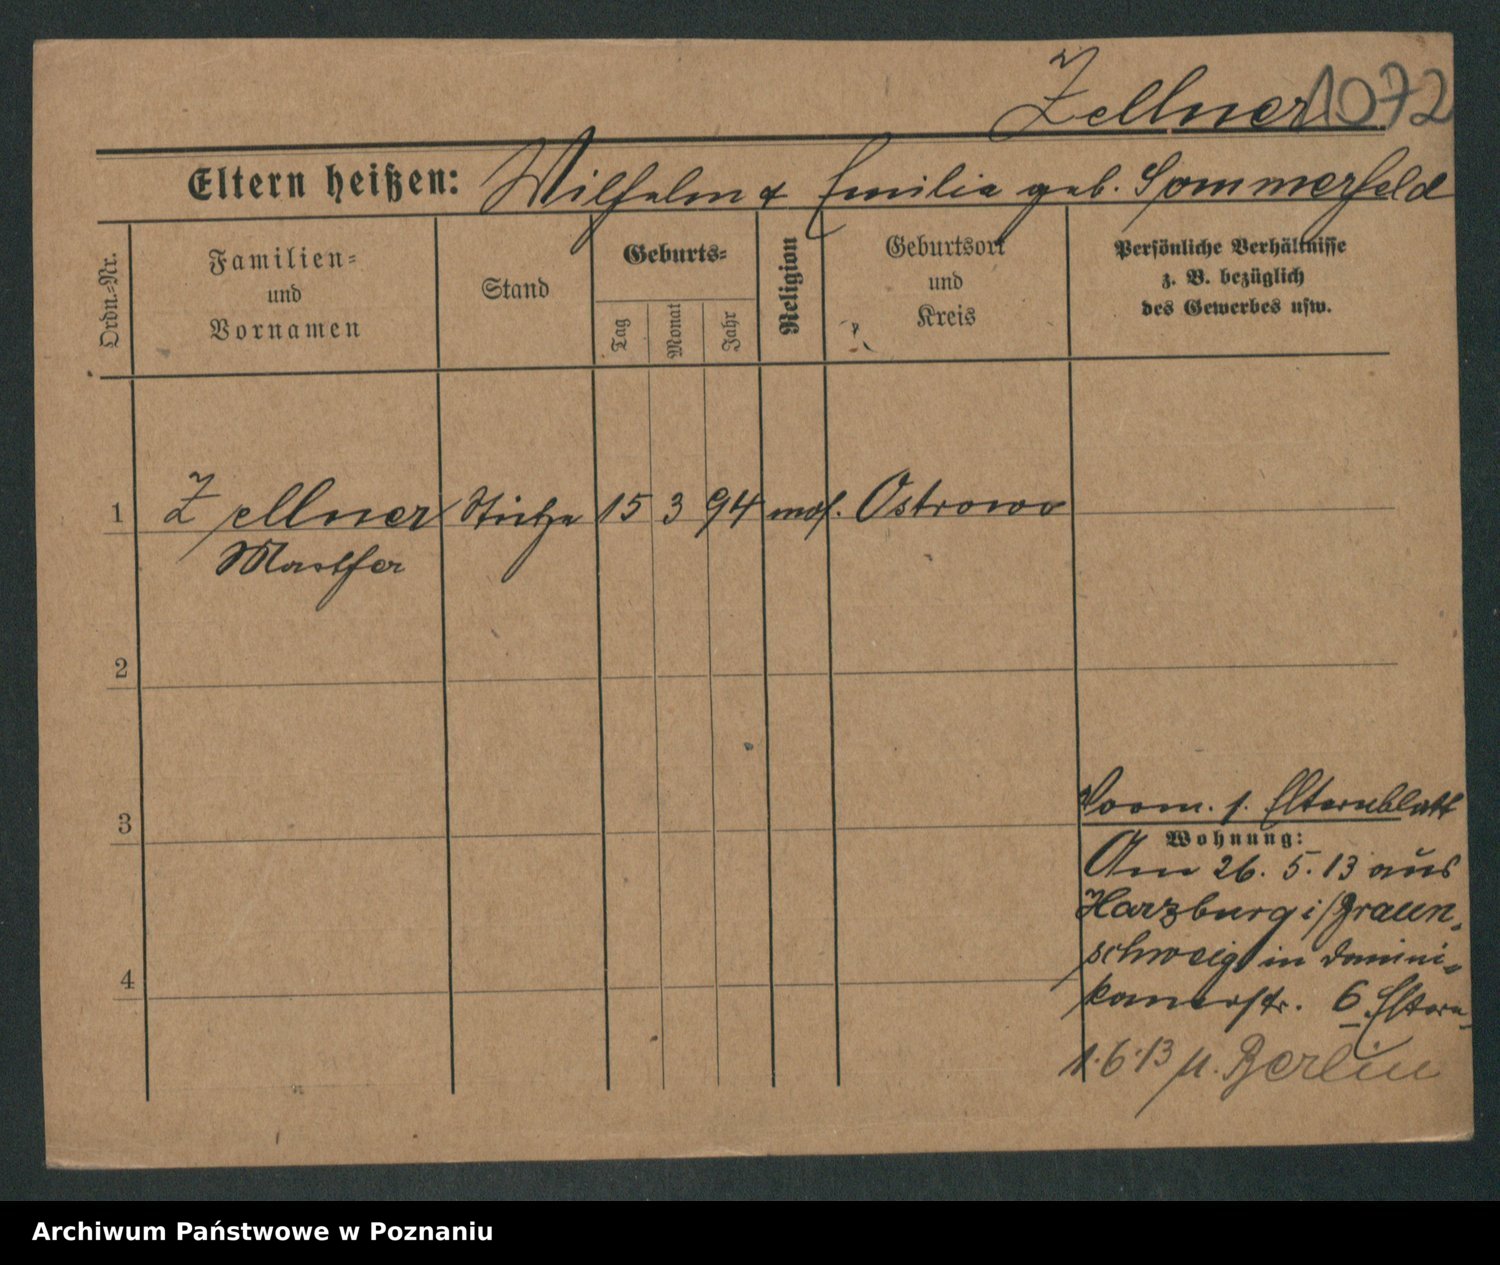 Zellner 1072
Eltern heißen: Wilhelm & Emilie geb. Sommerfeld
Ordn.=Nr.
Familien=
und
Vornamen
Stand
Geburts=
Tag
Monat
Jahr
Religion
Geburtsort
und
Kreis
Persönliche Verhältnisse
z. B. bezüglich
des Gewerbes usw.
1 Zellner Stütze 15 3 94 mos. Ostrowo
2
3
4
s. Elternblatt
Wohnung:
Am 26. 5. 13 aus
Harzburg i/Braun-
schweig in Domini-
kanerstr. 6 Eltern
1.6.13 n. Berlin
Archiwum Państwowe w Poznaniu